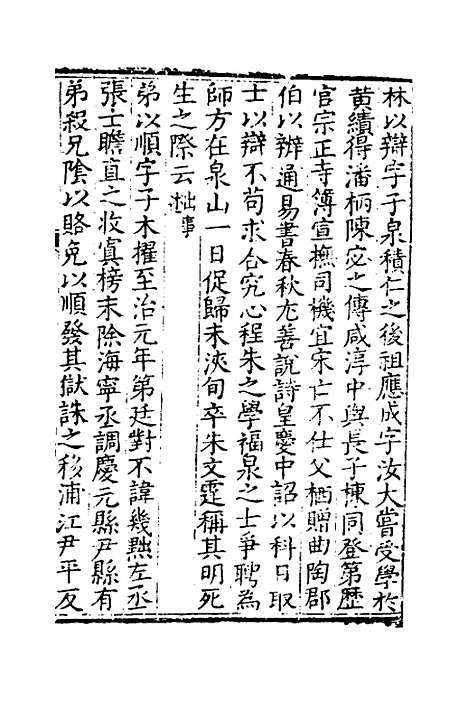 林以辯字子泉積仁之後祖應成字汝大嘗受學於
黄績得潘柄陳宓之傳咸淳中與長子棟同登第歴
官宗正寺簿宣撫司機宜宋亡不仕父栖贈曲陶郡
伯以辨通易書春秋尤善說詩皇慶中詔以科目取
士以辯不苟求合究心程朱之學福泉之士爭聘為
師方在泉山一日促歸未浹旬卒朱文霆稱其明死
生之際云
弟以順字子木擢至治元年第廷對不諱幾㸃左丞
張士瞻直之收寘榜末除海寧丞調慶元縣尹縣有
弟殺兄陰以賂免以順發其獄誅之移浦江尹平反